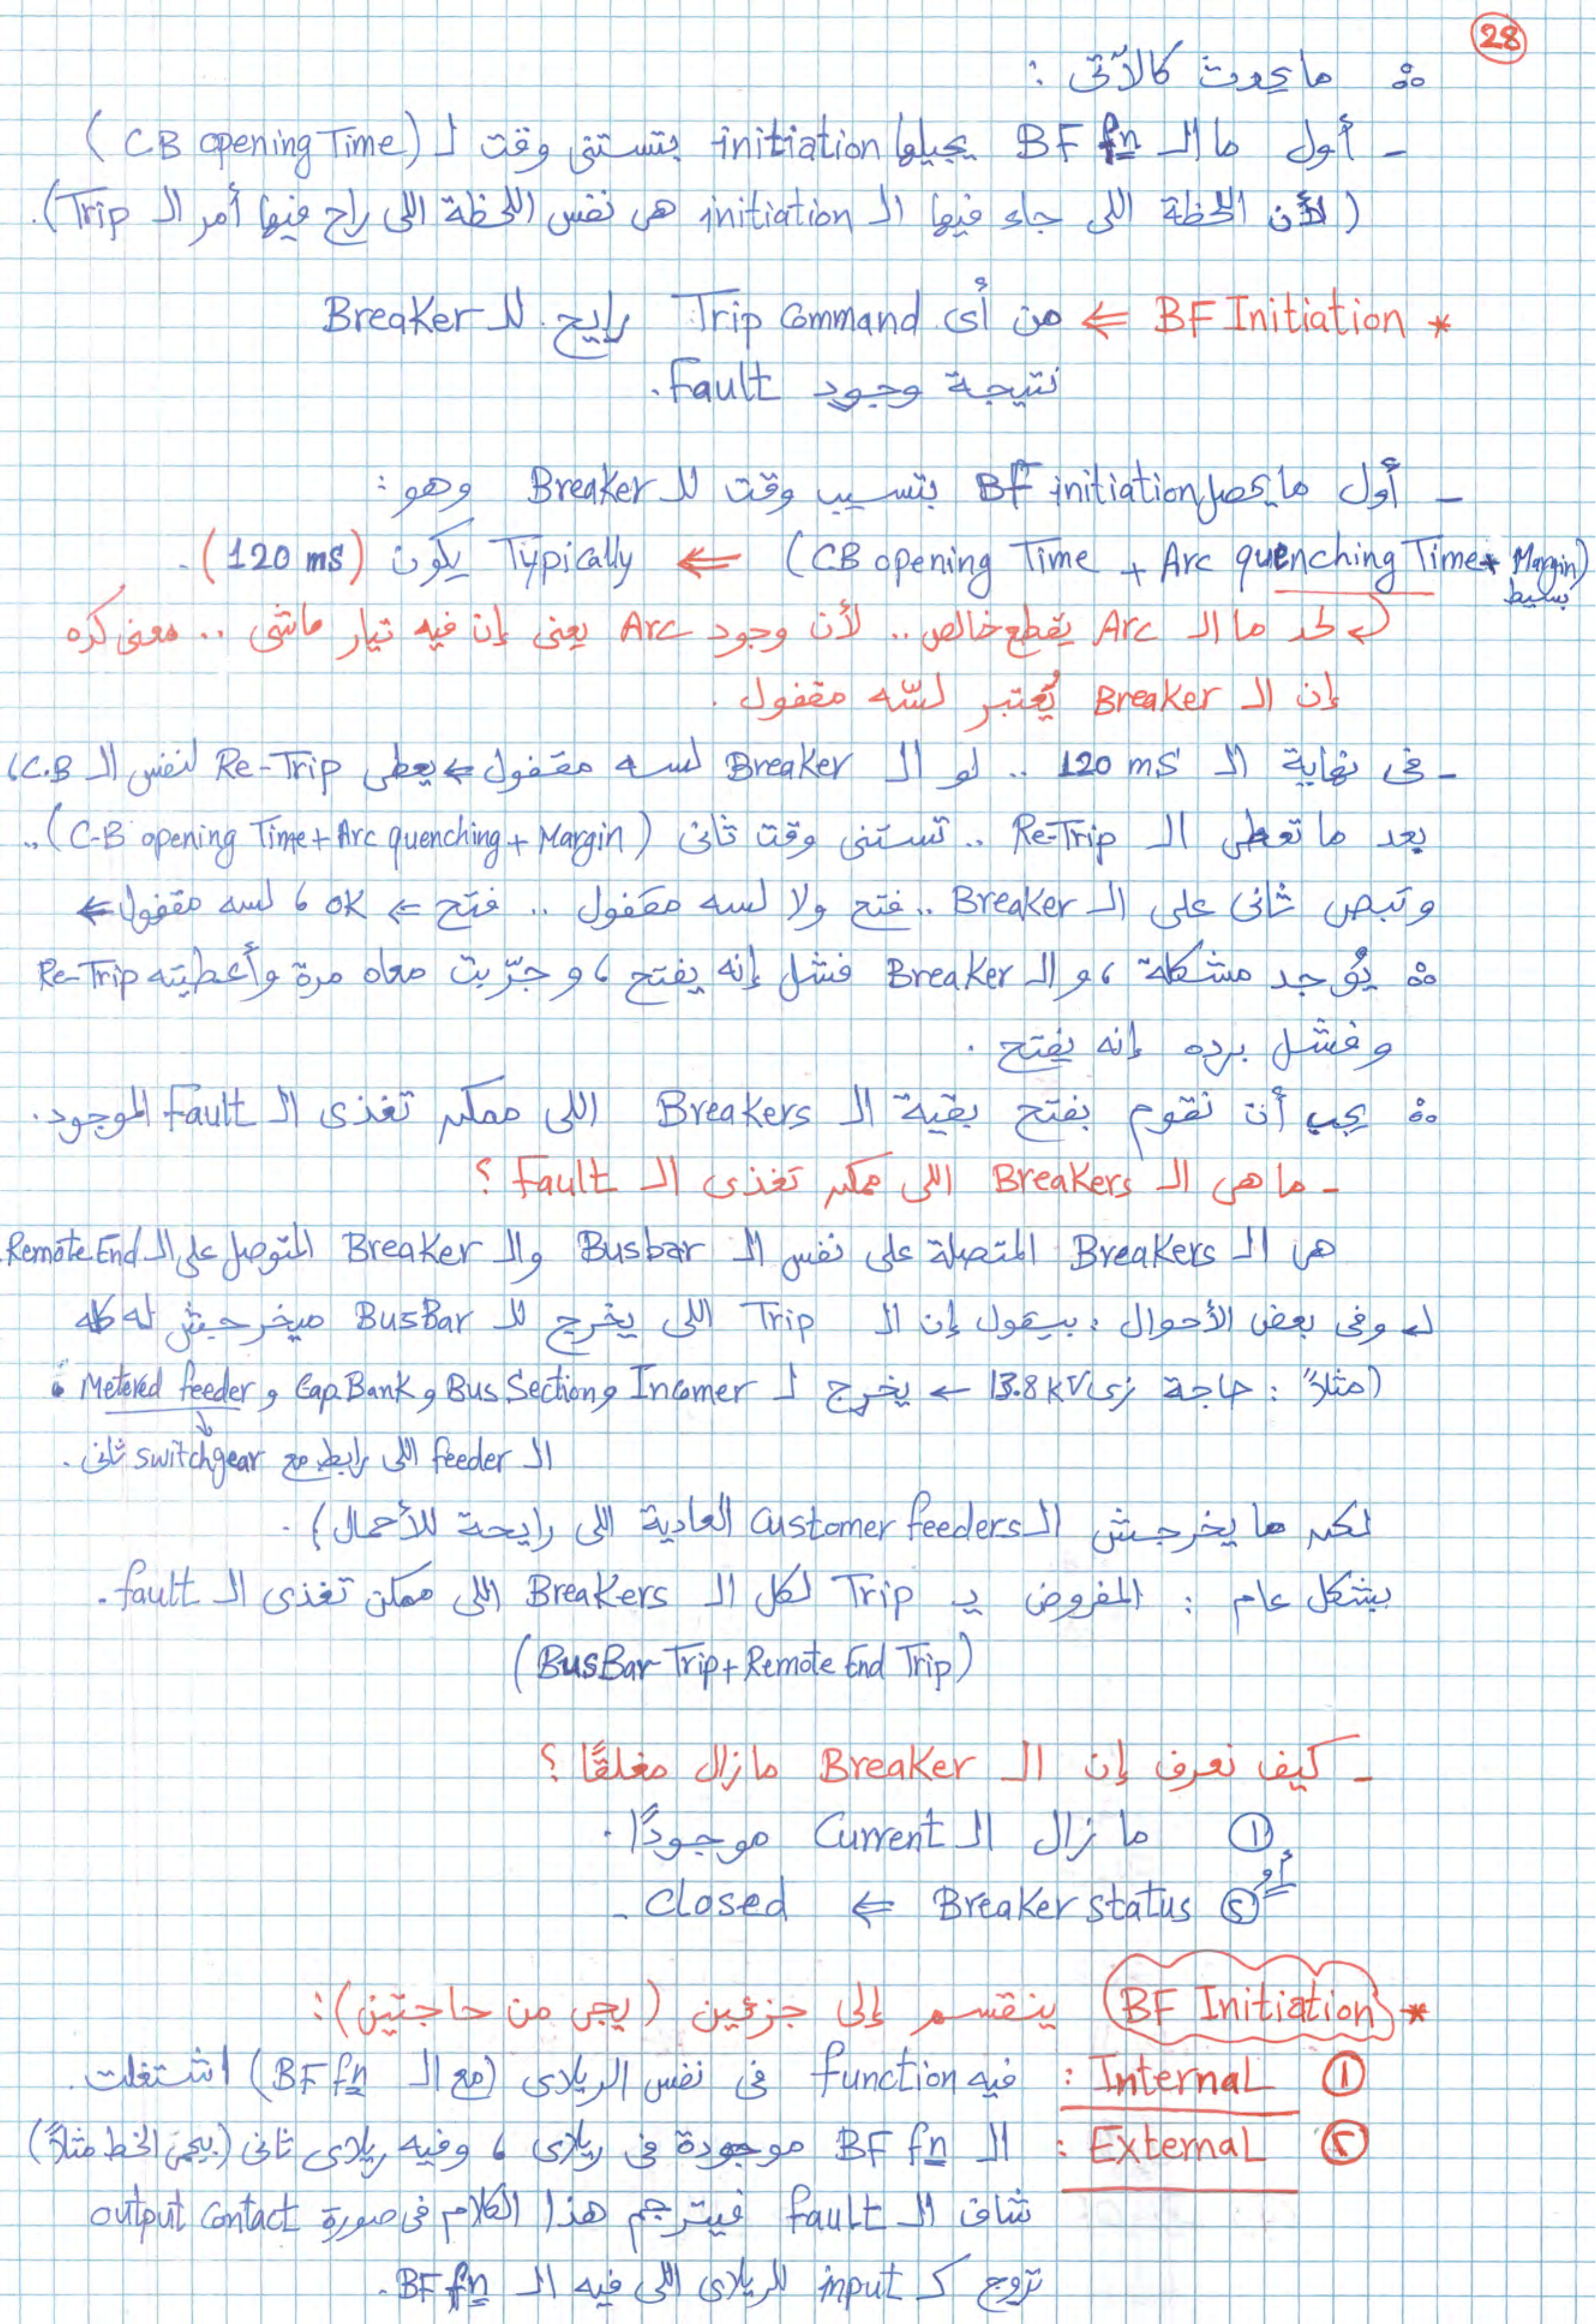 28
∴ ما يحدث كالآتى :
- أول ما الـ BF fn يجيلها initiation بتستنى وقت لـ (CB opening Time)
(لأن اللحظة اللى جاء فيها الـ initiation هى نفس اللحظة اللى راح فيها أمر الـ Trip).
* BF Initiation ⇐ من أى Trip Command رايح للـ Breaker
نتيجة وجود Fault.
- أول ما يحصل BF initiation بتسيب وقت للـ Breaker وهو :
(CB opening Time + Arc quenching Time + Margin بسيط) ⇐ Typically يكون (120 ms).
↲ لحد ما الـ Arc يقطع خالص .. لأن وجود Arc يعنى إن فيه تيار ماشى .. معنى كده
إن الـ Breaker يُعتبر لسّه مقفول .
- فى نهاية الـ 120 ms .. لو الـ Breaker لسه مقفول ⇐ يعطى Re-Trip لنفس الـ C.B،
بعد ما تعطى الـ Re-Trip .. تستنى وقت تانى (C-B opening Time + Arc quenching + Margin) ..
وتبص تانى على الـ Breaker .. فتح ولا لسه مقفول .. فتح ⇐ OK ، لسه مقفول ⇐
∴ يوجد مشكلة ، والـ Breaker فشل إنه يفتح ، وجرّبت معاه مرة وأعطيته Re-Trip
وفشل برده إنه يفتح .
∴ يجب أن نقوم بفتح بقية الـ Breakers اللى ممكن تغذى الـ Fault الموجود.
- ما هى الـ Breakers اللى ممكن تغذى الـ Fault ؟
هى الـ Breakers المتصلة على نفس الـ Busbar والـ Breaker المتوصل على الـ Remote End.
↲ وفى بعض الأحوال ، بيقول إن الـ Trip اللى يخرج للـ BusBar ميخرجش له كله
(مثلاً : حاجة زى 13.8 KV ← يخرج لـ Incomer و Bus Section و Cap.Bank و Metered feeder .
الـ feeder اللى رابط مع switchgear تانى .
لكن ما يخرجش الـ Customer feeders العادية اللى رايحة للأحمال) .
بشكل عام : المفروض يـ Trip لكل الـ Breakers اللى ممكن تغذى الـ fault.
(BusBar Trip + Remote End Trip)
- كيف نعرف إن الـ Breaker مازال مغلقًا ؟
① ما زال الـ Current موجودًا .
أو
② Breaker status ⇐ Closed .
* BF Initiation ينقسم إلى جزئين (يجى من حاجتين) :
① Internal : فيه function فى نفس الريلاى (مع الـ BF fn) اشتغلت .
② External : الـ BF fn موجودة فى ريلاى ، وفيه ريلاى تانى (بيحمى الخط مثلاً)
شاف الـ fault فيترجم هذا الكلام فى صورة output contact
تروح كـ input للريلاى اللى فيه الـ BF fn.